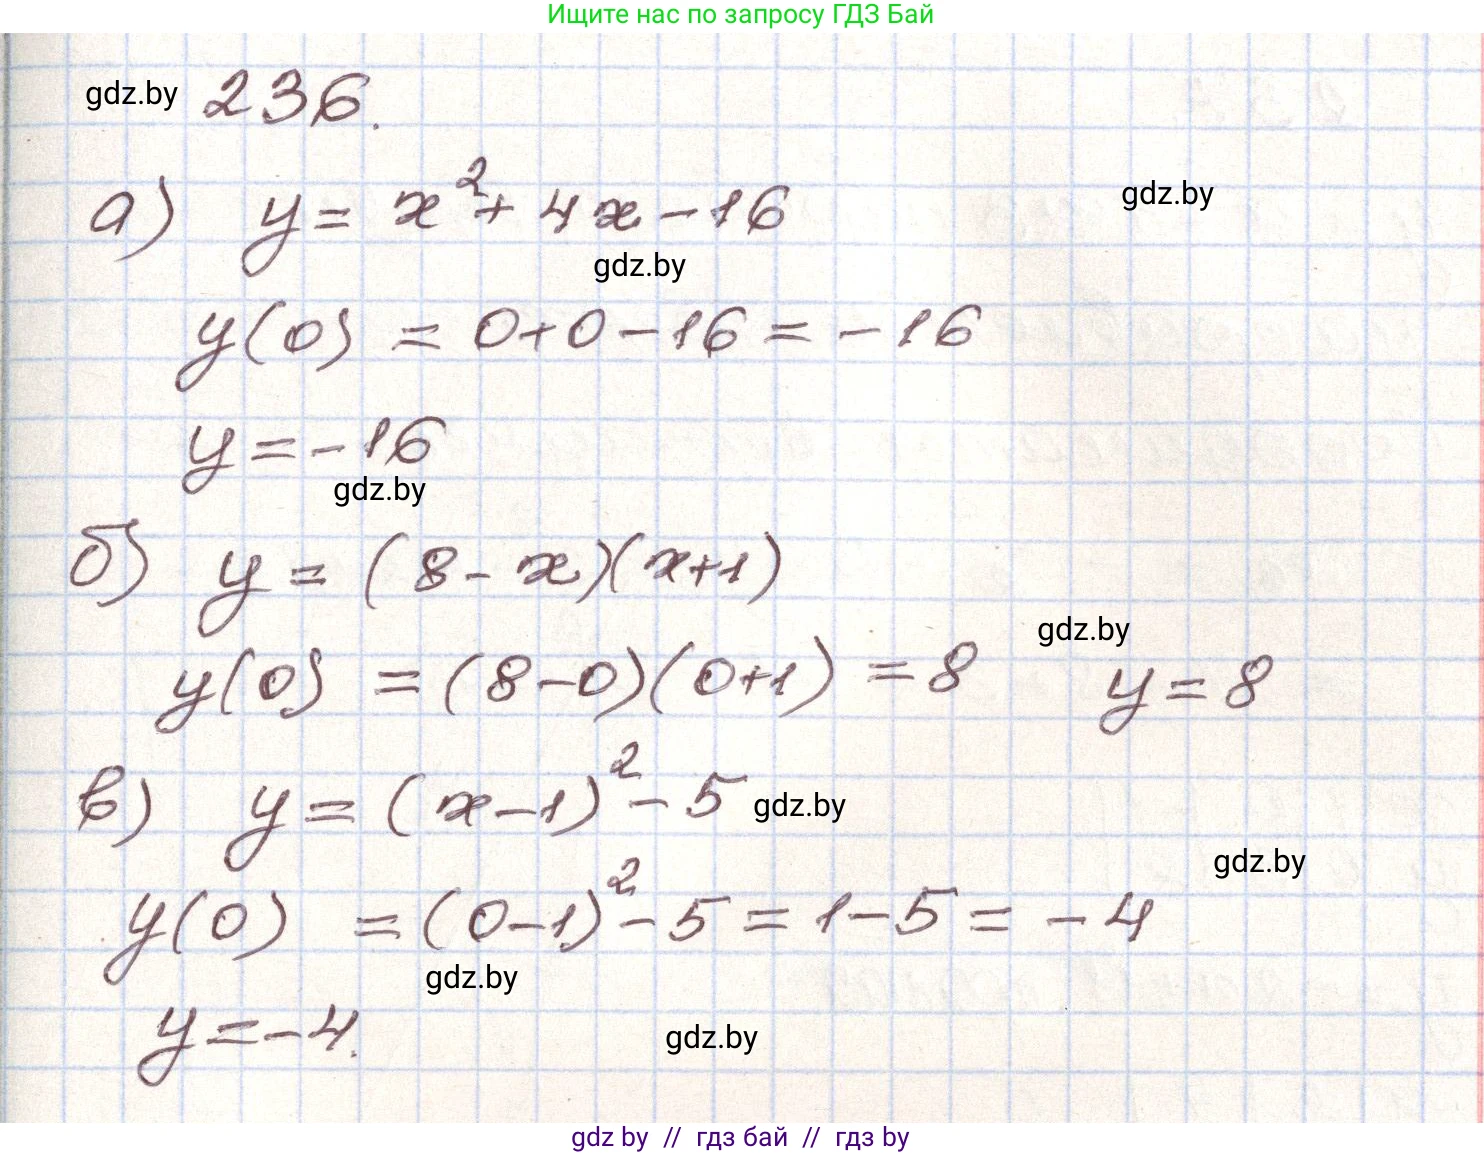 Ищите нас по запросу ГДЗ Бай
gdz.by 236.
а) y = x² + 4x - 16 gdz.by
gdz.by
y(0) = 0+0-16 = -16
y = -16
gdz.by
б) y = (8-x)(x+1)
gdz.by
y(0) = (8-0)(0+1) = 8 y = 8
в) y = (x-1)² - 5 gdz.by
gdz.by
y(0) = (0-1)² - 5 = 1-5 = -4
gdz.by
y = -4. gdz.by
gdz by // гдз бай // гдз by